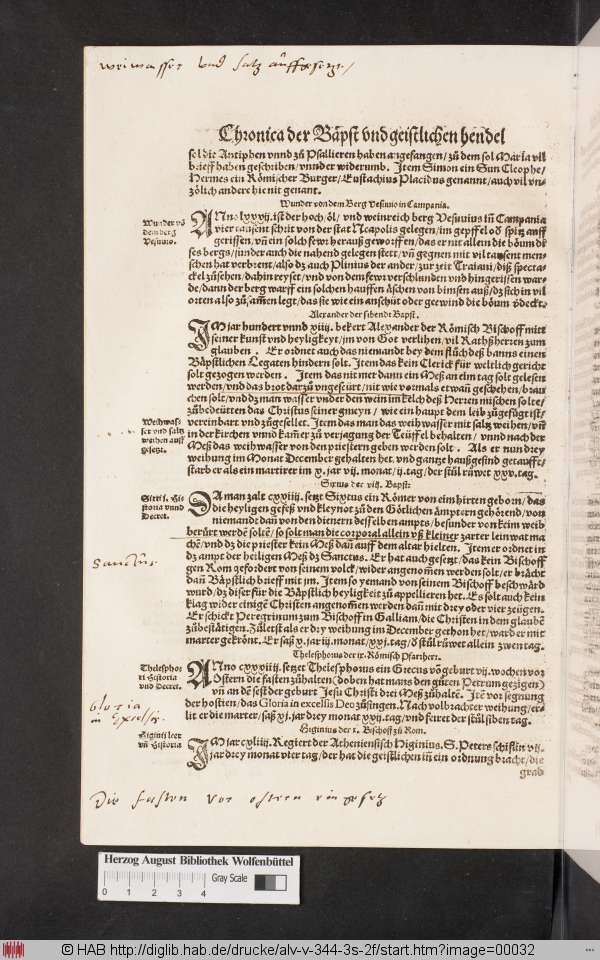 weiwasser vnd saltz auffgesetzt/
Chronica der Bäpst vnd geistlichen hendel
sol die Antiphen vnnd zů Psallieren haben angefangen/ zů dem sol Maria vil
brieff haben geschriben/ vnnder widerumb. Item Simon ein Sun Cleophe/
Hermes ein Römischer Burger/ Eustachius Placidus genannt/ auch vil vn-
zölich andere hie nit genant.
Wunder von dem Berg Vesuuio in Campania.
Wunder vō
dem berg
Vesuuio.
ANno lxxvij. ist der hoch/ öl/ vnd weinreich berg Vesuuius iñ Campania
vier tausent schrit von der stat Neapolis gelegen/ im gepffel oď spitz auff
gerissen/ vñ ein solch fewr herauß geworffen/ das er nit allein die böum di
ses bergs/ sunder auch die nahend gelegen stett/ vñ gegnen mit vil tausent men-
schen hat verbrent/ also dz auch Plinius der ander/ zur zeit Traiani/ diß specta-
ckel zůsehen/ dahin reyset/ vnd von dem fewr verschlunden vnd hingerissen war-
de/ dann der berg warff ein solchen hauffen äschen von bimsen auß/ dz sich in vil
orten also zůsam̃en legt/ das sie wie ein anschüt oder geewind die böum v̈deckt.
Alexander der sibendt Bapst.
IM jar hundert vnnd xiiij. bekert Alexander der Römisch Bischoff mitt
seiner kunst vnd heyligkeyt/ jm von Got verlihen/ vil Rathßherren zum
glauben. Er ordnet auch das niemandt bey dem flůch deß banns einen
Bäpstlichen Legaten hindern solt. Item das kein Clerick für weltlich gericht
solt gezogen werden. Item das nit mer dann ein Meß an eim tag solt gelesen
werden/ vnd das brot darzů vngeseürt/ nit wie vormals etwañ geschehen/ brau
chen solt/ vnd dz man wasser vnder den wein im kelch deß Herren mischen solte/
zůbedeütten das Christus seiner gmeyn/ wie ein haupt dem leib zůgefügt ist/
vereinbart vnd zůgesellet. Item das man das weihwasser mit saltz weihen/ vñ
in der kirchen vnnd kam̃er zů verjagung der Teüffel behalten/ vnnd nach der
Meß das weihwasser von den priestern geben werden solt. Als er nun drey
weihung im Monat December gehalten het vnd gantze haußgesind getaufft/
starb er als ein martirer im x. jar vij. monat/ ij. tag/ der stůl rüwet xxv. tag.
Weihwas-
ser vnd saltz
weihen auff
gesetzt.
Sixtus der viij. Bapst.
Sixti j. Hi
storia vnnd
Decret.
DA man zalt cxxiiij. setzt Sixtus ein Römer von eim hirten geborn/ das
die heyligen gefeß vnd kleynot zů den Götlichen ämptern gehörend/ von
niemandt dañ von den dienern desselben ampts/ besunder von keim weib
berürt werdē soltē/ so solt man die corporal allein vß kleiner zarter leinwat ma
chē/ vnd dz die priester kein Meß dañ auff dem altar hielten. Item er ordnet in
dz ampt der heiligen Meß dz Sanctus. Er hat auch gesetzt/ das kein Bischoff
gen Rom gefordert von seinem volck/ wider angenom̃en werden solt/ er brächt
dañ Bäpstlich brieff mit jm. Item so yemand von seinem Bischoff beschwärd
wurd/ dz diser für die Bäpstlich heyligkeit zů appellieren het. Es solt auch kein
klag wider einigē Christen angenom̃en werden dañ mit drey oder vier zeügen.
Er schickt Peregrinum zum Bischoff in Galliam/ die Christen in dem glaubē
zůbestätigen. Zůletst als er dry weihung im December gethon het/ ward er mit
marter gekrönt. Er saß x. jar iij. monat/ xxj. tag/ ď stůl rüwet allein zwen tag.
Sanctus
Thelesphorus der ix. Römisch Pfarherr.
Thelesphor
ri Historia
vnd Decret.
ANno cxxxiiij. setzet Thelesphorus ein Grecus vō geburt vij. wochen vor
Ostern die fasten zůhalten (doben hat mans den gůten Petrum gezigen)
vñ an dē fest der geburt Jesu Christi drei Meß zůhaltē. Itē vor segnung
der hostien/ das Gloria in excelsis Deo zůsingen. Nach volbrachter weihung/ er-
lit er die marter/ saß xj. jar drey monat xxij. tag/ vnd feiret der stůl siben tag.
gloria
in Excelsis
Higinius der x. Bischoff zů Rom.
Higinij leer
vñ Historia
IM jar cxliiij. Regiert der Atheniensisch Higinius. S. Peters schiflin vij.
jar drey monat vier tag/ der hat die geistlichen iñ ein ordnung bracht/ die
grad
Die fasten vor ostern eingesetz
Herzog August Bibliothek Wolfenbüttel
0 1 2 3 4 Gray Scale
© HAB http://diglib.hab.de/drucke/alv-v-344-3s-2f/start.htm?image=00032